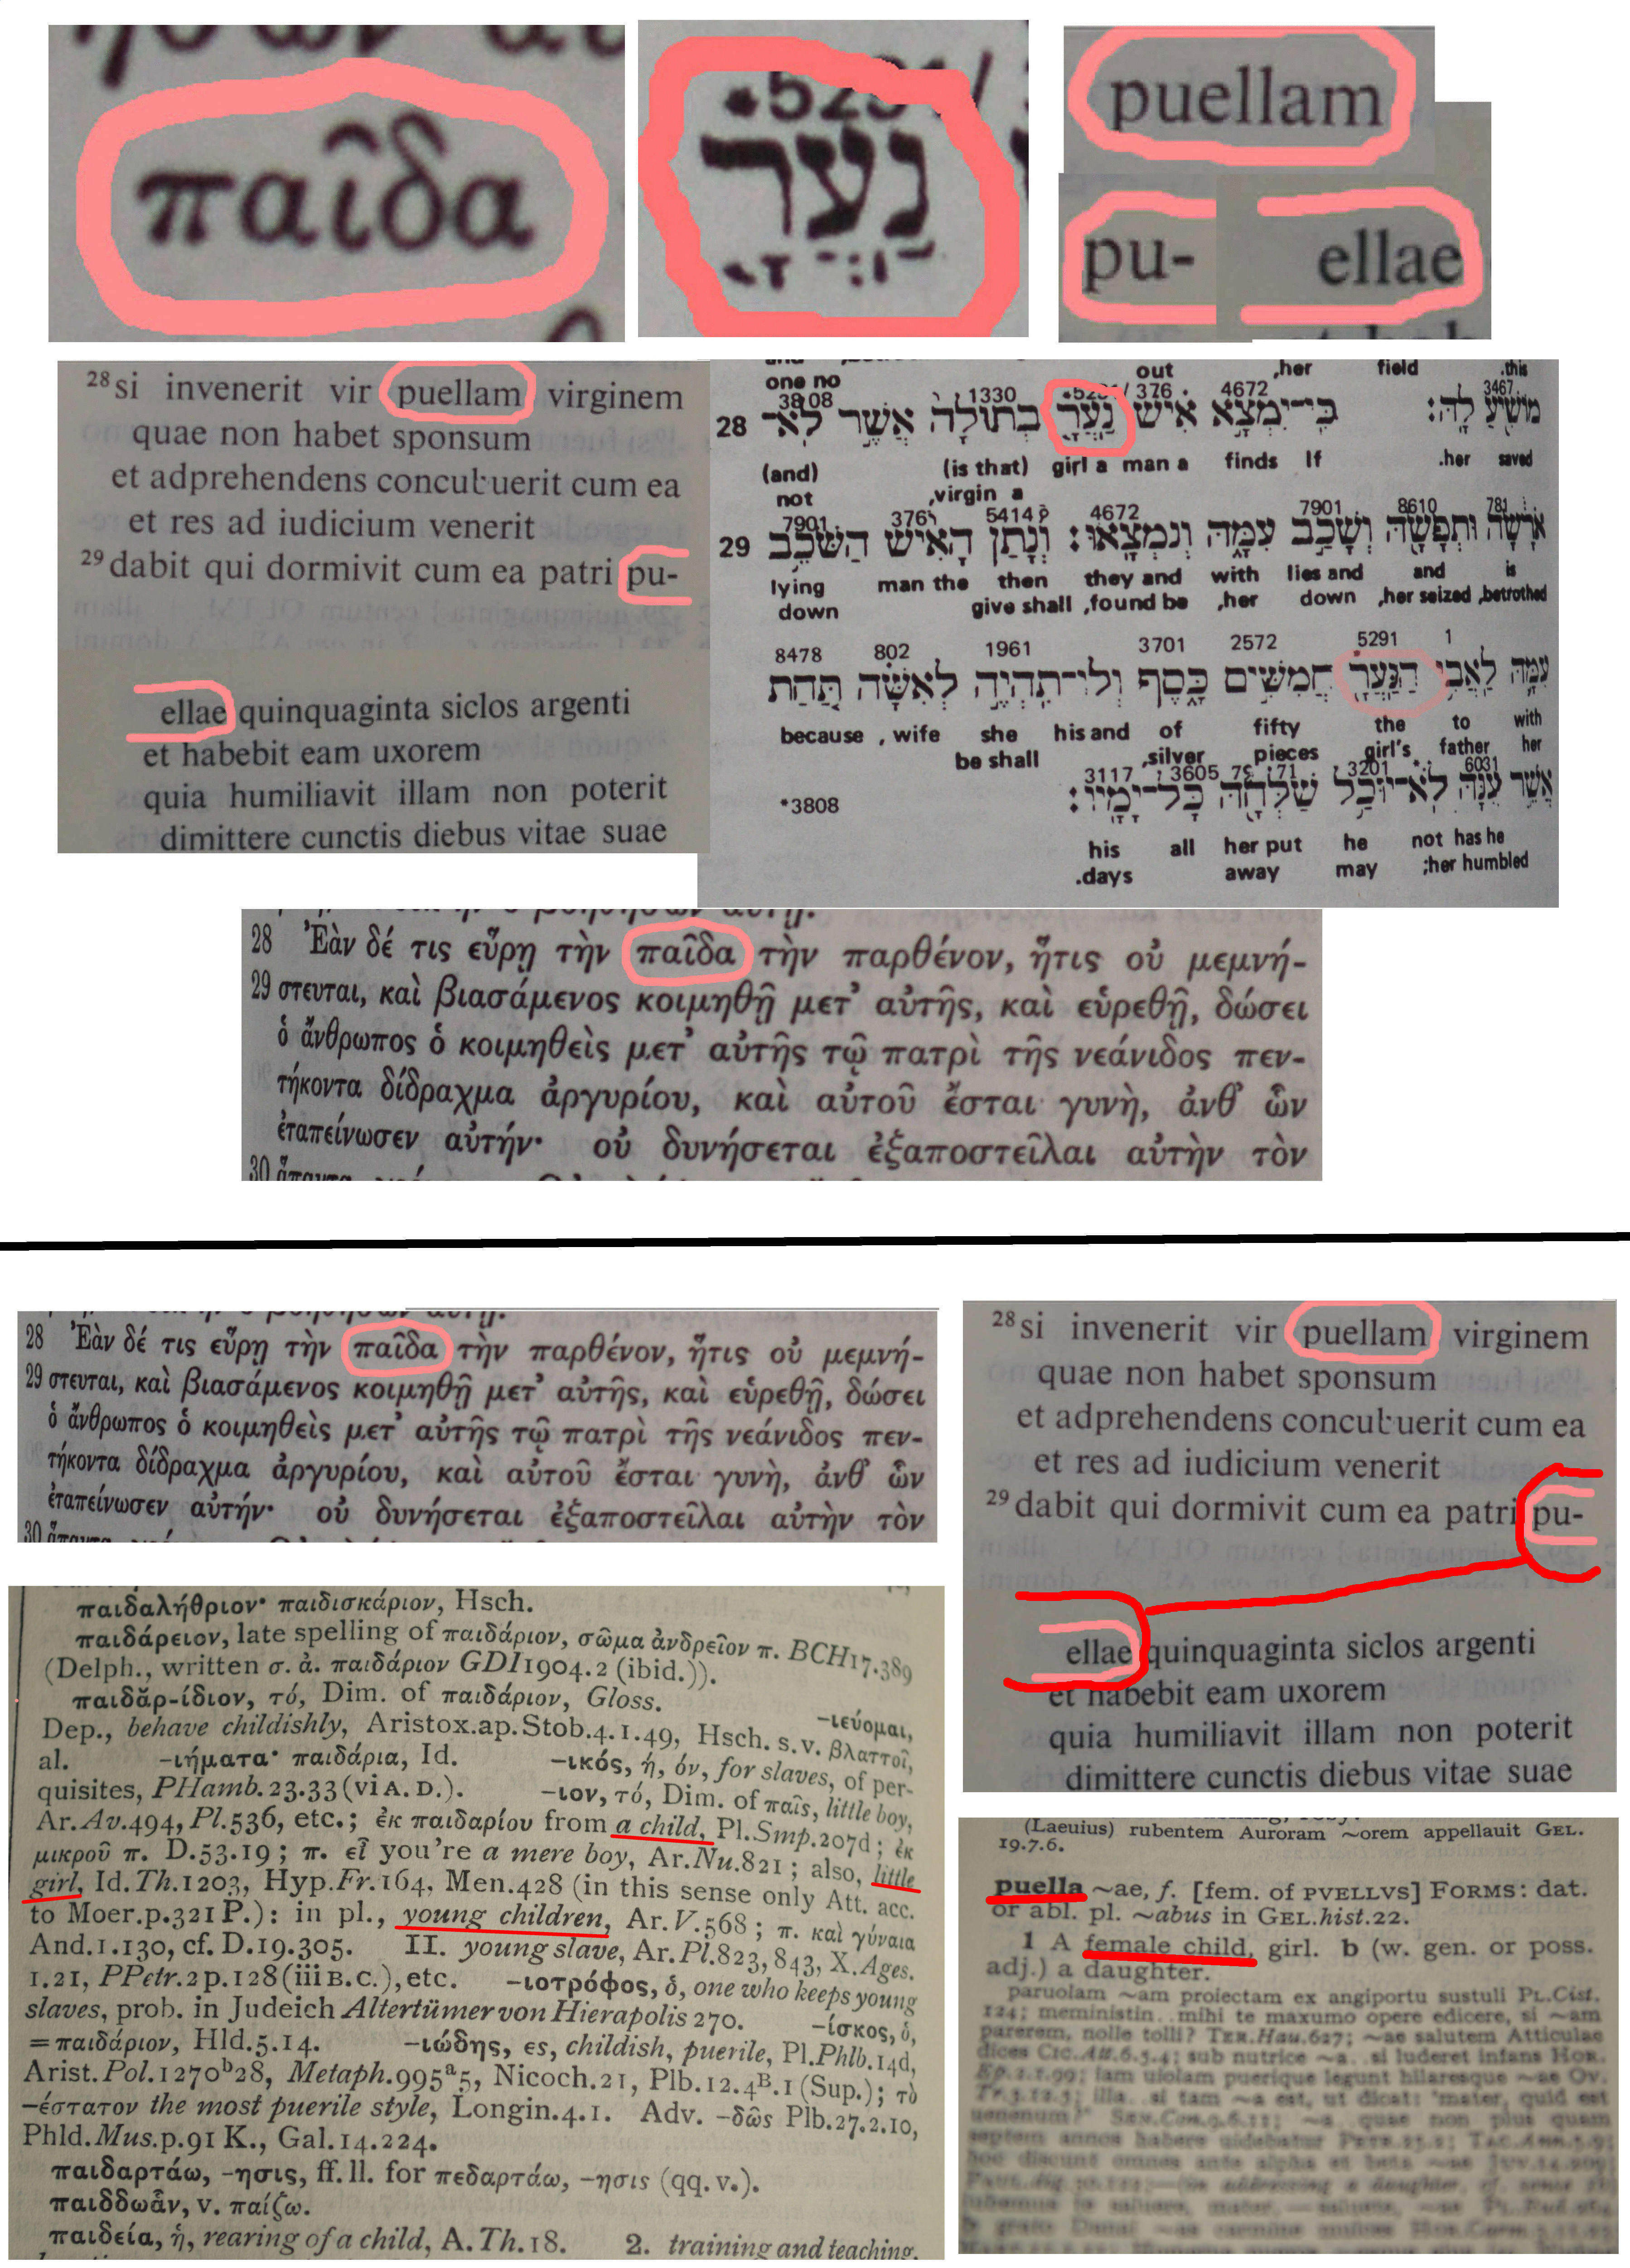 παῖδα
נַעֲרָ
puellam
pu- ellae
28 si invenerit vir puellam virginem
quae non habet sponsum
et adprehendens concubuerit cum ea
et res ad iudicium venerit
29 dabit qui dormivit cum ea patri pu-
ellae quinquaginta siclos argenti
et habebit eam uxorem
quia humiliavit illam non poterit
dimittere cunctis diebus vitae suae
one no out ,her field .this
3808 1330 376 4672 3467
28 מוֹשִׁיעַ לָהּ׃ כִּי־יִמְצָא אִישׁ נַעֲרָ בְתוּלָה אֲשֶׁר לֹא־
(and) (is that) girl a man a finds If .her saved
not ,virgin a
7901 376 5414 4672 7901 8610 781
29 אֹרָשָׂה וּתְפָשָׂהּ וְשָׁכַב עִמָּהּ וְנִמְצָאוּ׃ וְנָתַן הָאִישׁ הַשֹּׁכֵב
lying man the then they and with lies and and is
down give shall ,found be ,her down ,her seized ,betrothed
8478 802 1961 3701 2572 5291 1
עִמָּהּ לַאֲבִי הַנַּעֲרָ חֲמִשִּׁים כָּסֶף וְלוֹ־תִהְיֶה לְאִשָּׁה תַּחַת
because , wife she his and of fifty the to with
be shall ,silver pieces girl's father her
3117 3605 7971 3201 6031
*3808 אֲשֶׁר עִנָּהּ לֹא־יוּכַל שַׁלְּחָהּ כָּל־יָמָיו׃
his all her put he not has he
.days away may ;her humbled
28 Ἐὰν δέ τις εὕρῃ τὴν παῖδα τὴν παρθένον, ἥτις οὐ μεμνή-
29 στευται, καὶ βιασάμενος κοιμηθῇ μετ’ αὐτῆς, καὶ εὑρεθῇ, δώσει
ὁ ἄνθρωπος ὁ κοιμηθεὶς μετ’ αὐτῆς τῷ πατρὶ τῆς νεάνιδος πεν-
τήκοντα δίδραχμα ἀργυρίου, καὶ αὐτοῦ ἔσται γυνὴ, ἀνθ’ ὧν
ἐταπείνωσεν αὐτήν· οὐ δυνήσεται ἐξαποστεῖλαι αὐτὴν τὸν
30
28 Ἐὰν δέ τις εὕρῃ τὴν παῖδα τὴν παρθένον, ἥτις οὐ μεμνή-
29 στευται, καὶ βιασάμενος κοιμηθῇ μετ’ αὐτῆς, καὶ εὑρεθῇ, δώσει
ὁ ἄνθρωπος ὁ κοιμηθεὶς μετ’ αὐτῆς τῷ πατρὶ τῆς νεάνιδος πεν-
τήκοντα δίδραχμα ἀργυρίου, καὶ αὐτοῦ ἔσται γυνὴ, ἀνθ’ ὧν
ἐταπείνωσεν αὐτήν· οὐ δυνήσεται ἐξαποστεῖλαι αὐτὴν τὸν
30
28 si invenerit vir puellam virginem
quae non habet sponsum
et adprehendens concubuerit cum ea
et res ad iudicium venerit
29 dabit qui dormivit cum ea patri pu-
ellae quinquaginta siclos argenti
et habebit eam uxorem
quia humiliavit illam non poterit
dimittere cunctis diebus vitae suae
παιδαλήθριον· παιδισκάριον, Hsch.
παιδάρειον, late spelling of παιδάριον, σῶμα ἀνδρεῖον π. BCH17.389
(Delph., written σ. ἀ. παιδάριον GDI1904.2 (ibid.)).
παιδᾰρ-ίδιον, τό, Dim. of παιδάριον, Gloss. -ιεύομαι,
Dep., behave childishly, Aristox.ap.Stob.4.1.49, Hsch. s.v. βλαττοῖ,
al. -ιήματα· παιδάρια, Id. -ικός, ή, όν, for slaves, of per-
quisites, PHamb.23.33 (vi A.D.). -ιον, τό, Dim. of παῖς, little boy,
Ar.Av.494, Pl.536, etc.; ἐκ παιδαρίου from a child, Pl.Smp.207d; ἐκ
μικροῦ π. D.53.19; π. εἶ you're a mere boy, Ar.Nu.821; also, little
girl, Id.Th.1203, Hyp.Fr.164, Men.428 (in this sense only Att. acc.
to Moer.p.321 P.): in pl., young children, Ar.V.568; π. καὶ γύναια
And.1.130, cf. D.19.305. II. young slave, Ar.Pl.823, 843, X.Ages.
1.21, PPetr.2p.128 (iii B.C.), etc. -ιοτρόφος, ὁ, one who keeps young
slaves, prob. in Judeich Altertümer von Hierapolis 270. -ίσκος, ὁ,
=παιδάριον, Hld.5.14. -ιώδης, ες, childish, puerile, Pl.Phlb.14d,
Arist.Pol.1270b28, Metaph.995a5, Nicoch.21, Plb.12.4B.1 (Sup.); τὸ
-έστατον the most puerile style, Longin.4.1. Adv. -δῶς Plb.27.2.10,
Phld.Mus.p.91 K., Gal.14.224.
παιδαρτάω, -ησις, ff. ll. for πεδαρτάω, -ησις (qq. v.).
παιδδωᾶν, v. παίζω.
παιδεία, ἡ, rearing of a child, A.Th.18. 2. training and teaching,
(Laeuius) rubentem Auroram ~orem appellauit GEL.
19.7.6.
puella ~ae, f. [fem. of PVELLVS] FORMS: dat.
or abl. pl. ~abus in GEL.hist.22.
1 A female child, girl. b (w. gen. or poss.
adj.) a daughter.
paruolam ~am proiectam ex angiportu sustuli PL.Cist.
124; meministin.. mihi te maxumo opere edicere, si ~am
parerem, nolle tolli? TER.Hau.627; ~ae salutem Atticulae
dices CIC.Att.6.5.4; sub nutrice ~a. si luderet infans HOR.